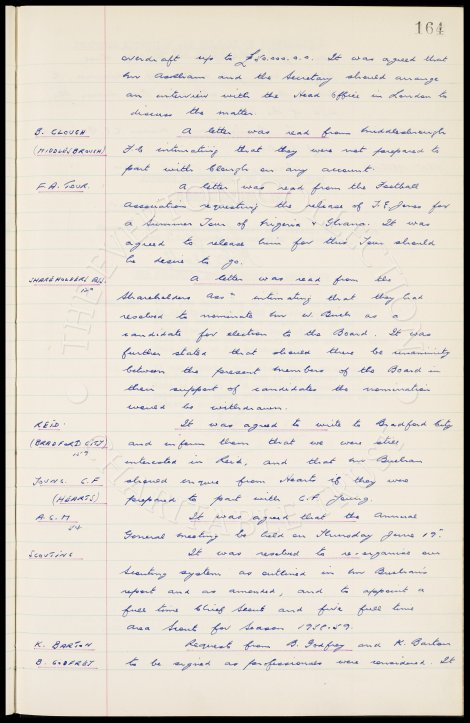 164
overdraft up to £50,000.0.0. It was agreed that
Mr Azurdia and the Secretary should arrange
an interview with the Head Office in London to
discuss the matter.
B. CLOUGH A letter was read from Middlesbrough
(MIDDLESBROUGH) F.C intimating that they were not prepared to
part with Clough on any account.
F.A. TOUR. A letter was read from the Football
Association requesting the release of T.E. Jones for
a Summer Tour of Nigeria & Ghana. It was
agreed to release him for this Tour should
he desire to go.
SHAREHOLDERS ASS. A letter was read from the
Shareholders Assn intimating that they had
resolved to nominate Mr W. as a
candidate for election to the Board. It was
further stated that should there be unanimity
between the present members of the Board in
their support of candidates the nomination
would be withdrawn.
REID. It was agreed to write to Bradford City
(BRADFORD CITY) and inform them that we were still
interested in Reid, and that Mr Buchan
YOUNG. C.F should enquire from Hearts if they were
(HEARTS) prepared to part with C.F. Young.
A.G.M It was agreed that the Annual
General meeting be held on Thursday June 19th.
SCOUTING It was resolved to re-organise our
Scouting system as outlined in Mr Buchan's
report and as amended, and to appoint a
full time Chief Scout and five full time
area Scouts for Season 1958-59.
K. BARTON Requests from B. Godfrey and K. Barton
B. GODFREY to be signed as professionals were considered. It